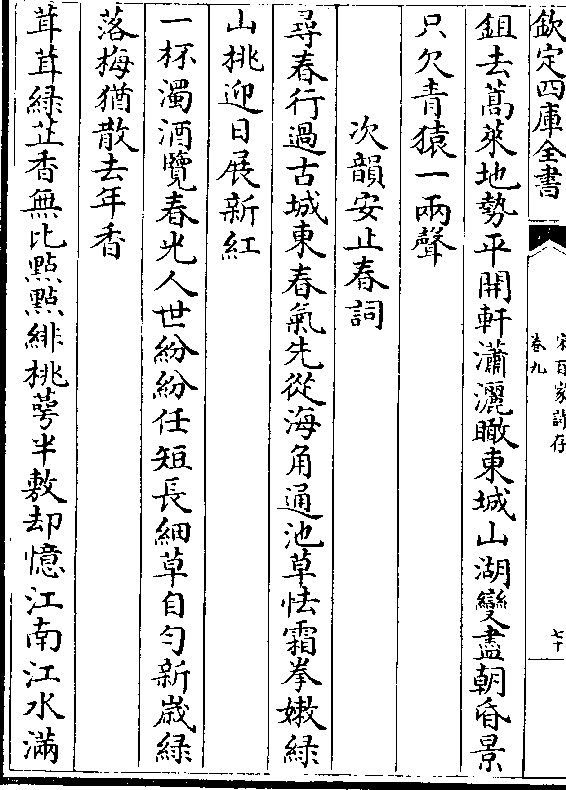 欽定四庫全書
宋百家詩存
卷九
七十
鉏去蒿萊地勢平開軒瀟灑瞰東城山湖變盡朝昏景
只欠青猿一兩聲
次韻安止春詞
尋春行過古城東春氣先從海角通池草怯霜拳嫩綠
山桃迎日展新紅
一杯濁酒覽春光人世紛紛任短長細草自勻新歲綠
落梅猶散去年香
茸茸綠芷香無比點點緋桃萼半敷却憶江南江水滿